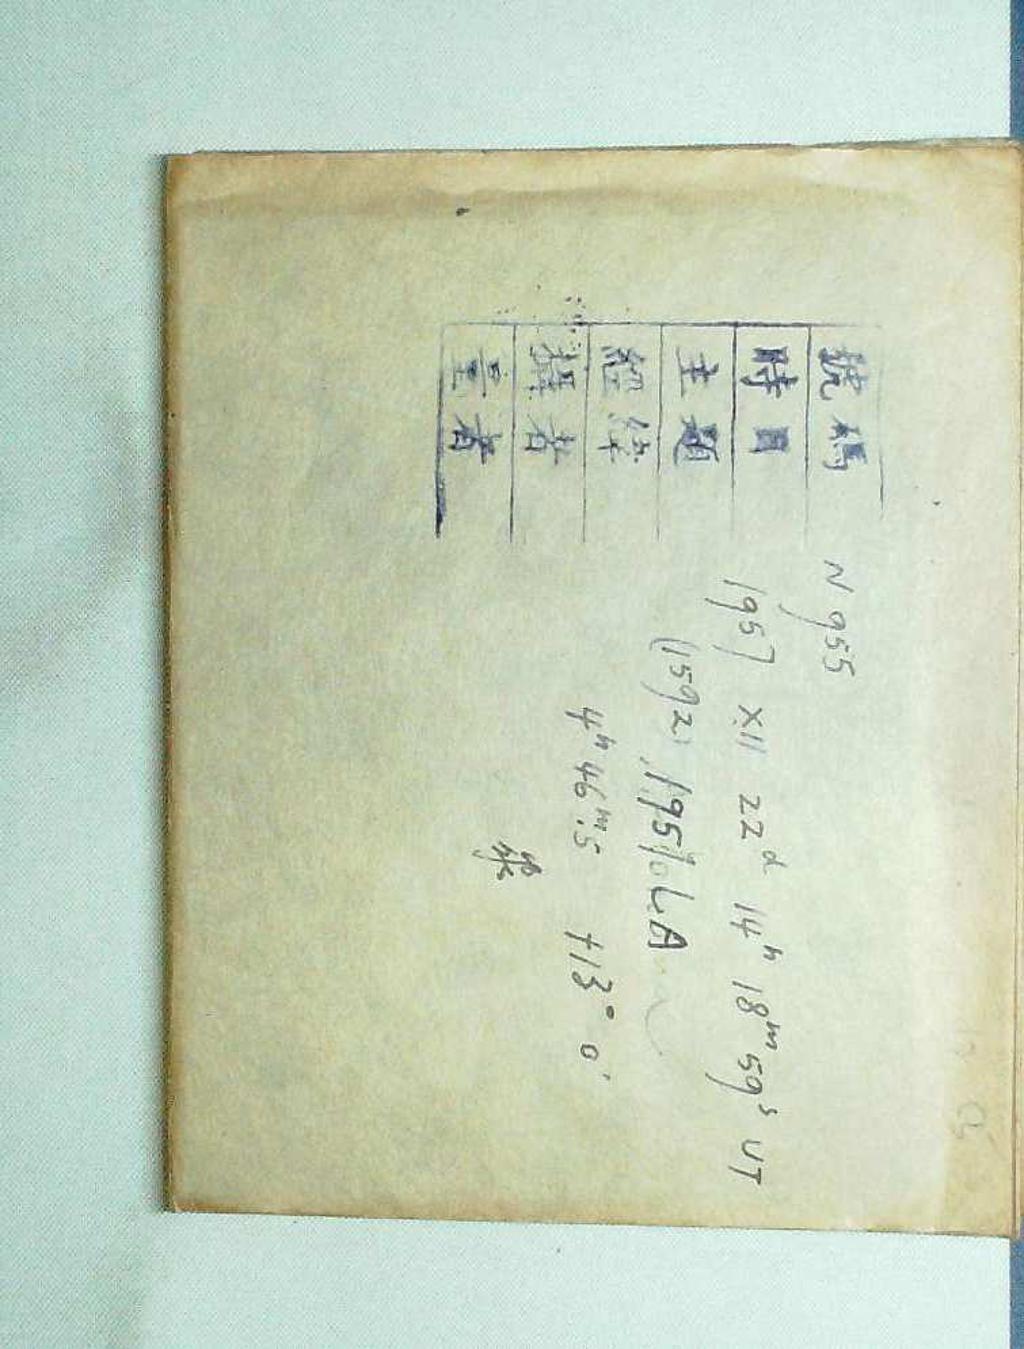 號碼 N 955
時間 1957 XII 22ᵈ 14ʰ 18ᵐ 59ˢ UT
主題 (1592), 1951 LA
經緯 4ʰ 46ᵐ.5 +13° 0'
攝者
量者